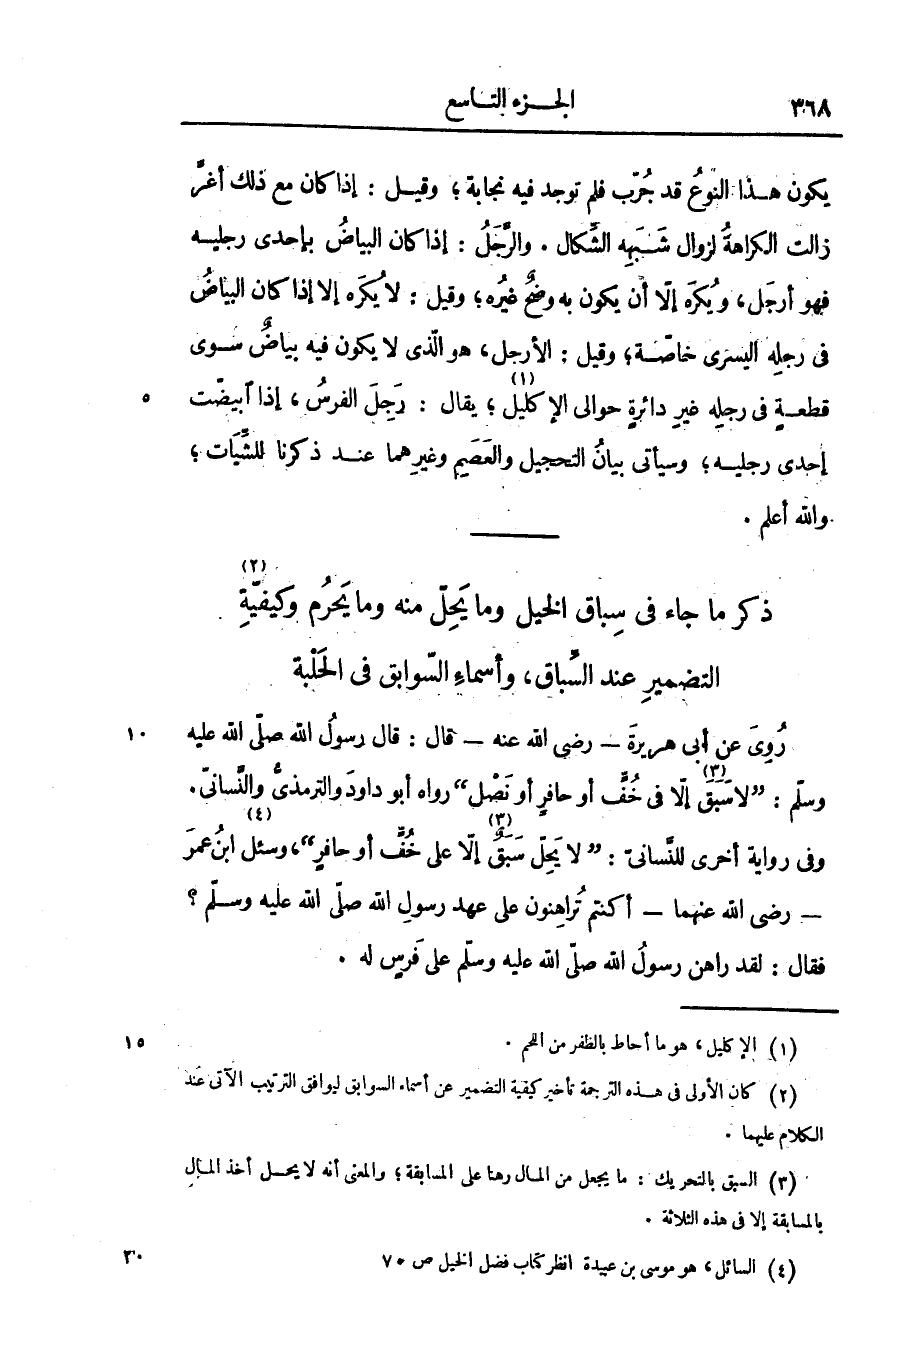 ٣٦٨ الجزء التاسع
يكون هذا النوعُ قد جُرّب فلم توجد فيه نجابة؛ وقيل : إذا كان مع ذلك أغرَّ
زالت الكراهةُ لزوال شَبَهِه الشِّكال . والرَّجَلُ : إذا كان البياضُ بإحدى رجليه
فهو أرجَل، ويُكرَه إلّا أن يكون به وضَحٌ غيُره؛ وقيل : لا يُكرَه إلا إذا كان البياضُ
فى رجلِه اليسرَى خاصّة؛ وقيل : الأرجل، هو الّذى لا يكون فيه بياضٌ سوى
قطعةٍ فى رجلِه غيرِ دائرةٍ حوالى الإكليل (١)؛ يقال : رَجِلَ الفرسُ، إذا ٱبيضّت ٥
إحدى رجليه؛ وسيأتى بيانُ التحجيل والعَصَمِ وغيرِهما عند ذكرنا للشِّيَات؛
والله أعلم .
ذكر ما جاء فى سِباق الخيل وما يَحِلّ منه وما يَحرُم وكيفيّةِ (٢)
التضميرِ عند السِّباق، وأسماءِ السّوابق فى الحَلْبة
رُوِىَ عن أبى هريرةَ — رضى الله عنه — قال : قال رسولُ الله صلّى الله عليه ١٠
وسلّم : ”لا سَبَقَ (٣) إلّا فى خُفٍّ أو حافرٍ أو نَصْل“ رواه أبو داودَ والترمذىُّ والنَّسائىّ.
وفى رواية أخرى للنَّسائىّ : ”لا يَحِلّ سَبَقٌ (٣) إلّا على خُفٍّ أو حافرٍ“، وسئل (٤) ابنُ عمرَ
— رضى الله عنهما — أكنتم تُراهِنون على عهد رسولِ الله صلّى الله عليه وسلّم ؟
فقال : لقد راهن رسولُ الله صلّى الله عليه وسلّم على فَرَسٍ له .
(١) الإكليل، هو ما أحاط بالظفر من اللحم . ١٥
(٢) كان الأولى فى هذه الترجمة تأخير كيفية التضمير عن أسماء السوابق ليوافق الترتيب الآتى عند
الكلام عليهما .
(٣) السبق بالتحريك : ما يجعل من المال رهنا على المسابقة؛ والمعنى أنه لا يحل أخذ المال
بالمسابقة إلا فى هذه الثلاثة .
(٤) السائل، هو موسى بن عبيدة انظر كتاب فضل الخيل ص ٧٠ ٢٠